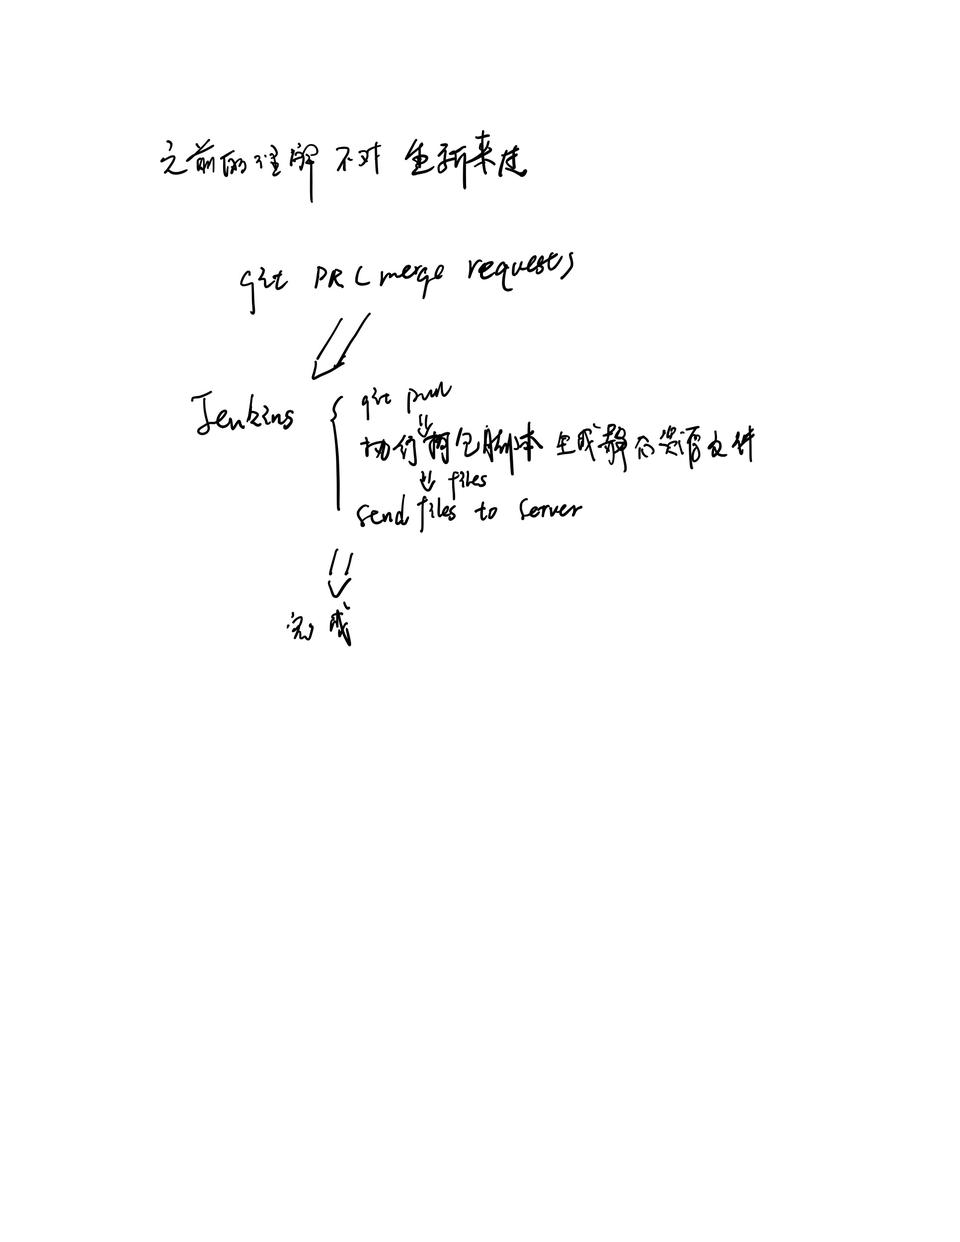 之前的理解 不对 重新来过
git PR (merge request)
Jenkins
git pull
执行打包脚本 生成静态资源文件
files
send files to server
完成